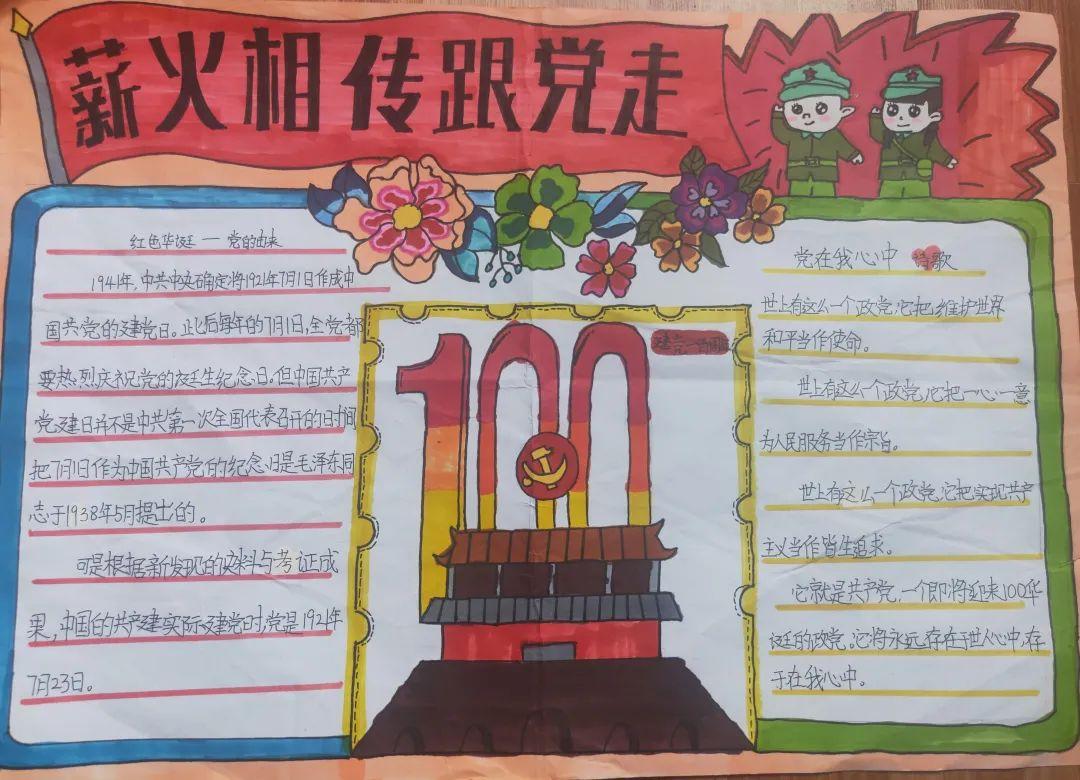 薪火相传跟党走
红色华诞 — 党的由来
1941年,中共中央确定将1921年7月1日作成中
国共党的建党日。此后每年的7月1日,全党都
要热烈庆祝党的诞生纪念日。但中国共产
党建日并不是中共第一次全国代表召开的日时间
把7月1日作为中国共产党的纪念日是毛泽东同
志于1938年5月提出的。
可是根据新发现的史料与考证成
果,中国的共产建实际建党时,党是1921年
7月23日。
100
建党一百周年
党在我心中 诗歌
世上有这么一个政党,它把维护世界
和平当作使命。
世上有这么一个政党,它把一心一意
为人民服务当作宗旨。
世上有这么一个政党,它把实现共产
主义当作皆生追求。
它就是共产党,一个即将迎来100华
诞的政党。它将永远存在于世人心中,存
于在我心中。